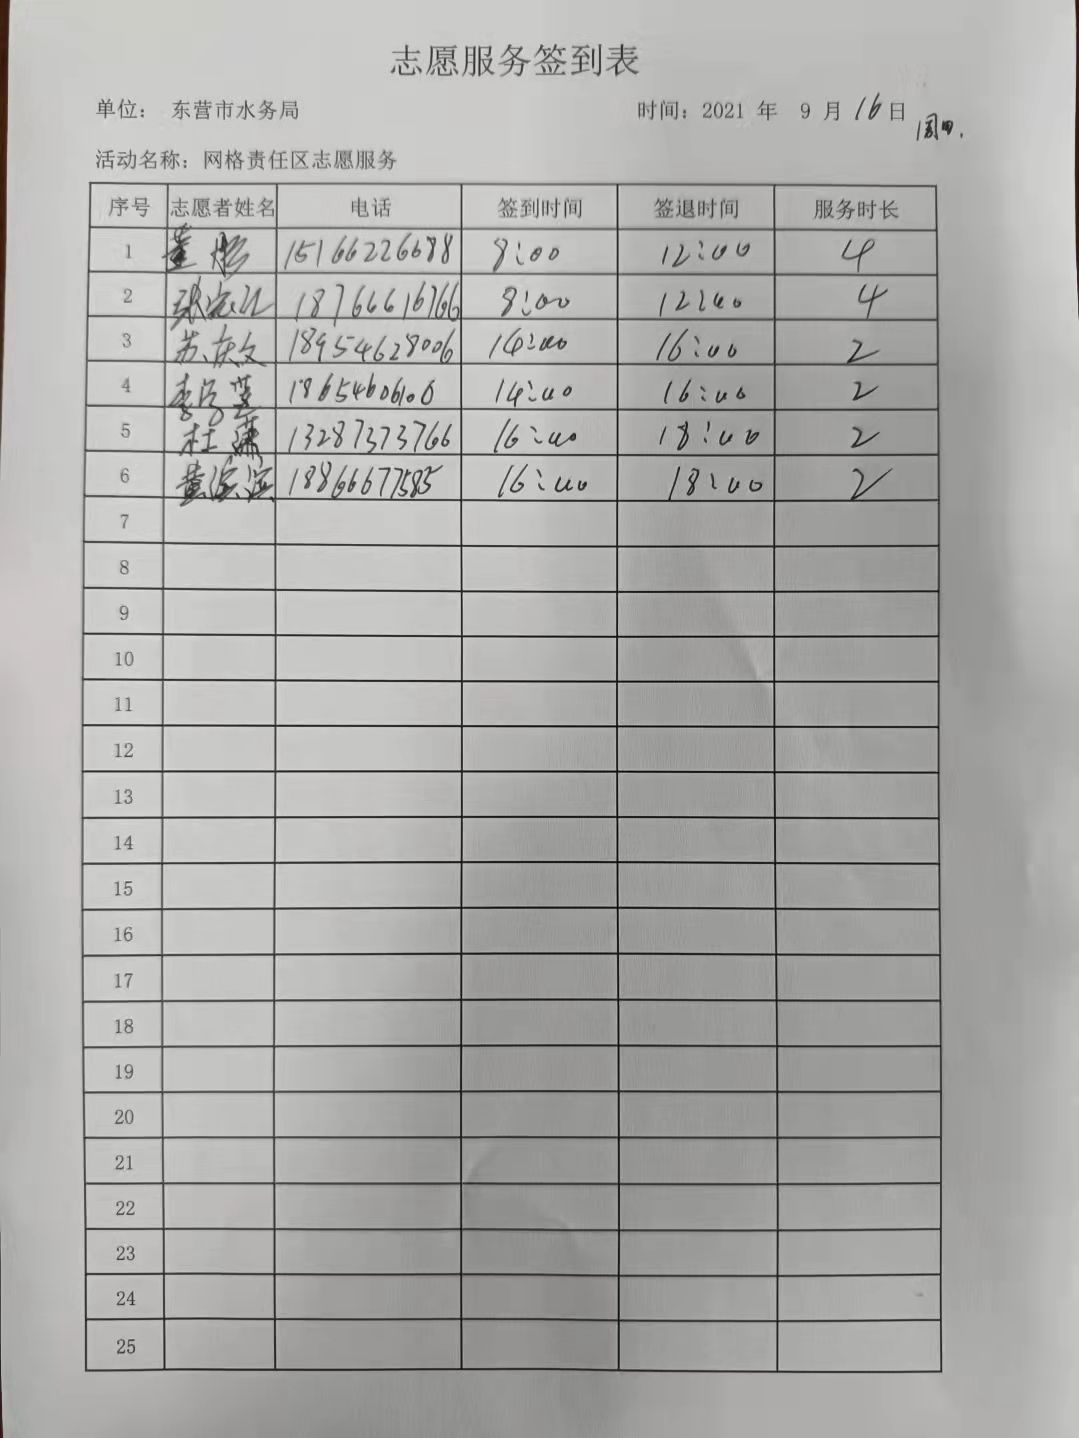 志愿服务签到表
单位： 东营市水务局 时间：2021 年 9 月 16 日
周四.
活动名称：网格责任区志愿服务
序号 志愿者姓名 电话 签到时间 签退时间 服务时长
1 15166226688 8:00 12:00 4
2 18766616766 8:00 12:00 4
3 苏庆文 18954628006 14:00 16:00 2
4 14:00 16:00 2
5 杜 13287373766 16:00 18:00 2
6 黄滨滨 18866677585 16:00 18:00 2
7
8
9
10
11
12
13
14
15
16
17
18
19
20
21
22
23
24
25